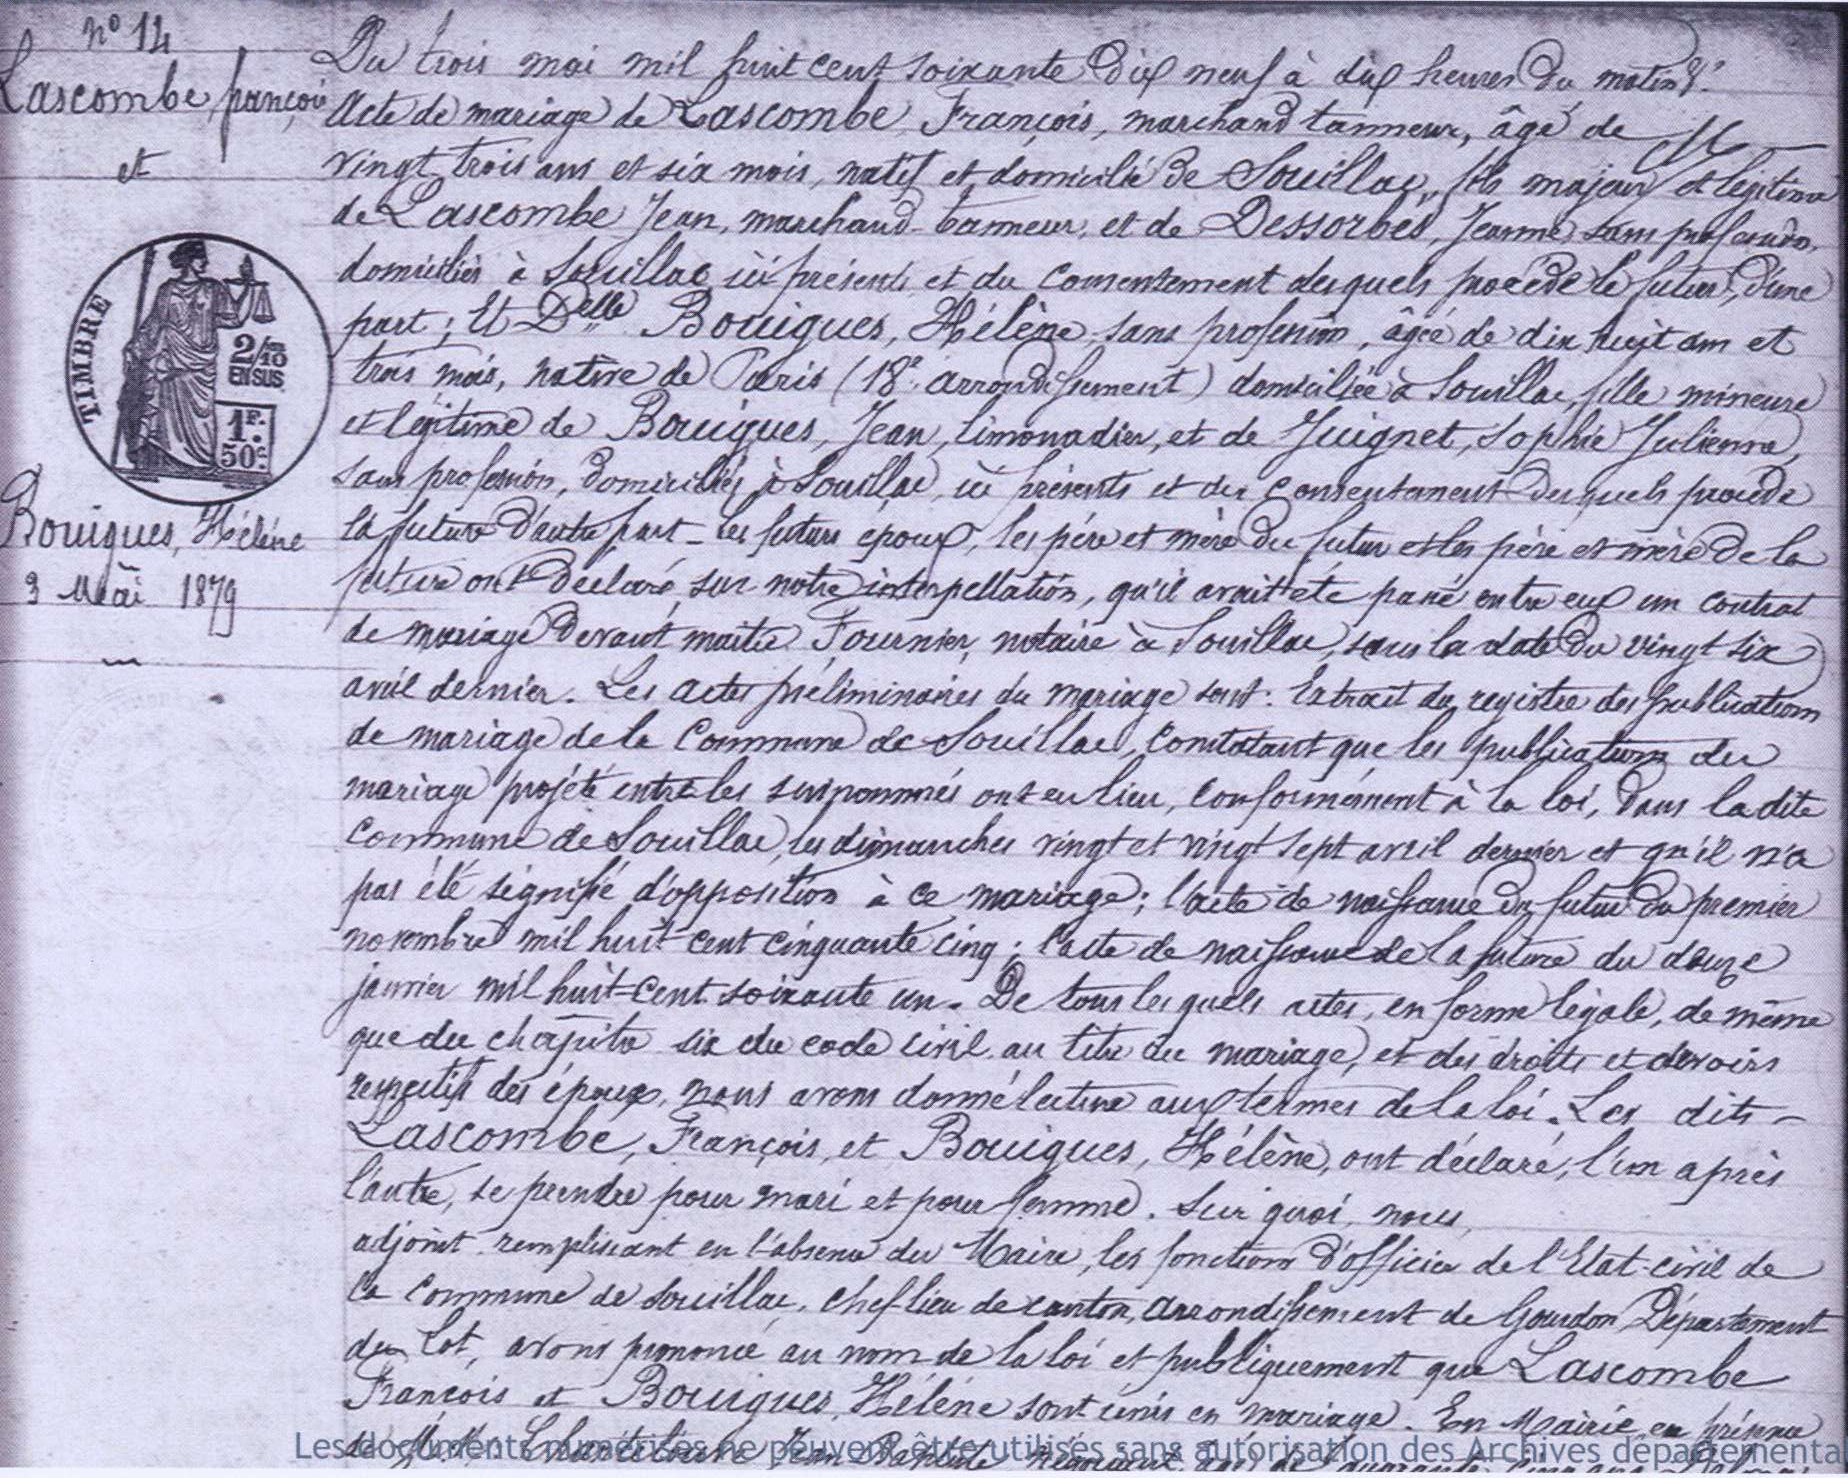 nº 14
Lascombe françois
et
TIMBRE
2/10
EN SUS
1F.
50c.
Bouigues, Hélène
3 Mai 1879
Du trois mai mil huit cent soixante dix neuf à dix heures du matin
Acte de mariage de Lascombe François, marchand tanneur, âgé de
vingt trois ans et six mois, natif et domicilié de Souillac, fils majeur et légitime
de Lascombe Jean, marchand-tanneur, et de Dessorbes, Jeanne sans profession,
domiciliés à Souillac ici présents et du consentement desquels procède le futur, d'une
part; Et Delle Bouigues, Hélène, sans profession, âgée de dix huit ans et
trois mois, native de Paris (18e arrondissement) domiciliée à Souillac, fille mineure
et légitime de Bouigues, Jean, limonadier, et de Juignet, Sophie Julienne,
sans profession, domiciliés à Souillac, ici présents et du consentement desquels procède
la future d'autre part - les futurs époux, les père et mère du futur et les père et mère de la
future ont déclaré, sur notre interpellation, qu'il avait été passé entre eux un contrat
de mariage devant maître Fournier, notaire à Souillac, sous la date du vingt six
avril dernier. Les actes préliminaires du mariage sont: Extrait du registre des publications
de mariage de la Commune de Souillac, constatant que les publications du
mariage projeté entre les susnommés ont eu lieu, conformément à la loi, dans la dite
Commune de Souillac, les dimanches vingt et vingt sept avril dernier et qu'il n'a
pas été signifié d'opposition à ce mariage; l'acte de naissance du futur du premier
novembre mil huit cent cinquante cinq; l'acte de naissance de la future du douze
janvier mil huit-cent soixante un. De tous lesquels actes, en forme légale, de même
que du chapitre six du code civil au titre du mariage, et des droits et devoirs
respectifs des époux, nous avons donné lecture aux termes de la loi. Les dits -
Lascombe, François, et Bouigues, Hélène, ont déclaré, l'un après
l'autre, se prendre pour mari et pour femme. Sur quoi, nous,
adjoint remplissant en l'absence du Maire, les fonctions d'officier de l'Etat-civil de
la Commune de Souillac, chef-lieu de canton, arrondissement de Gourdon, Département
du Lot, avons prononcé au nom de la loi et publiquement que Lascombe
François et Bouigues, Hélène sont unis en mariage. En Mairie, en présence
Jean Baptiste négociant âgé de quarante cinq ans
Les documents numérisés ne peuvent être utilisés sans autorisation des Archives départementa